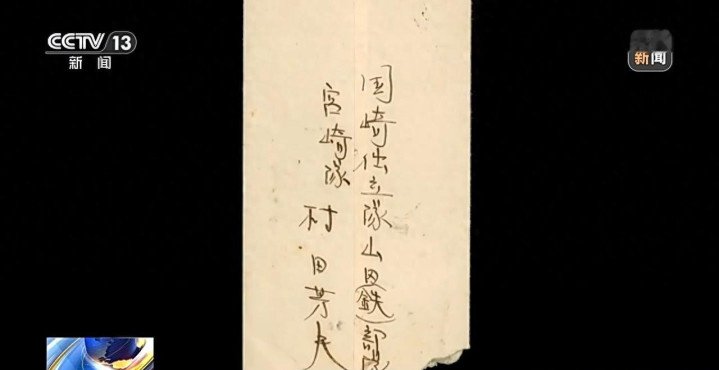 CCTV 13
新闻
新闻
国崎独立隊山田(鉄)部隊
宮崎隊 村田芳夫